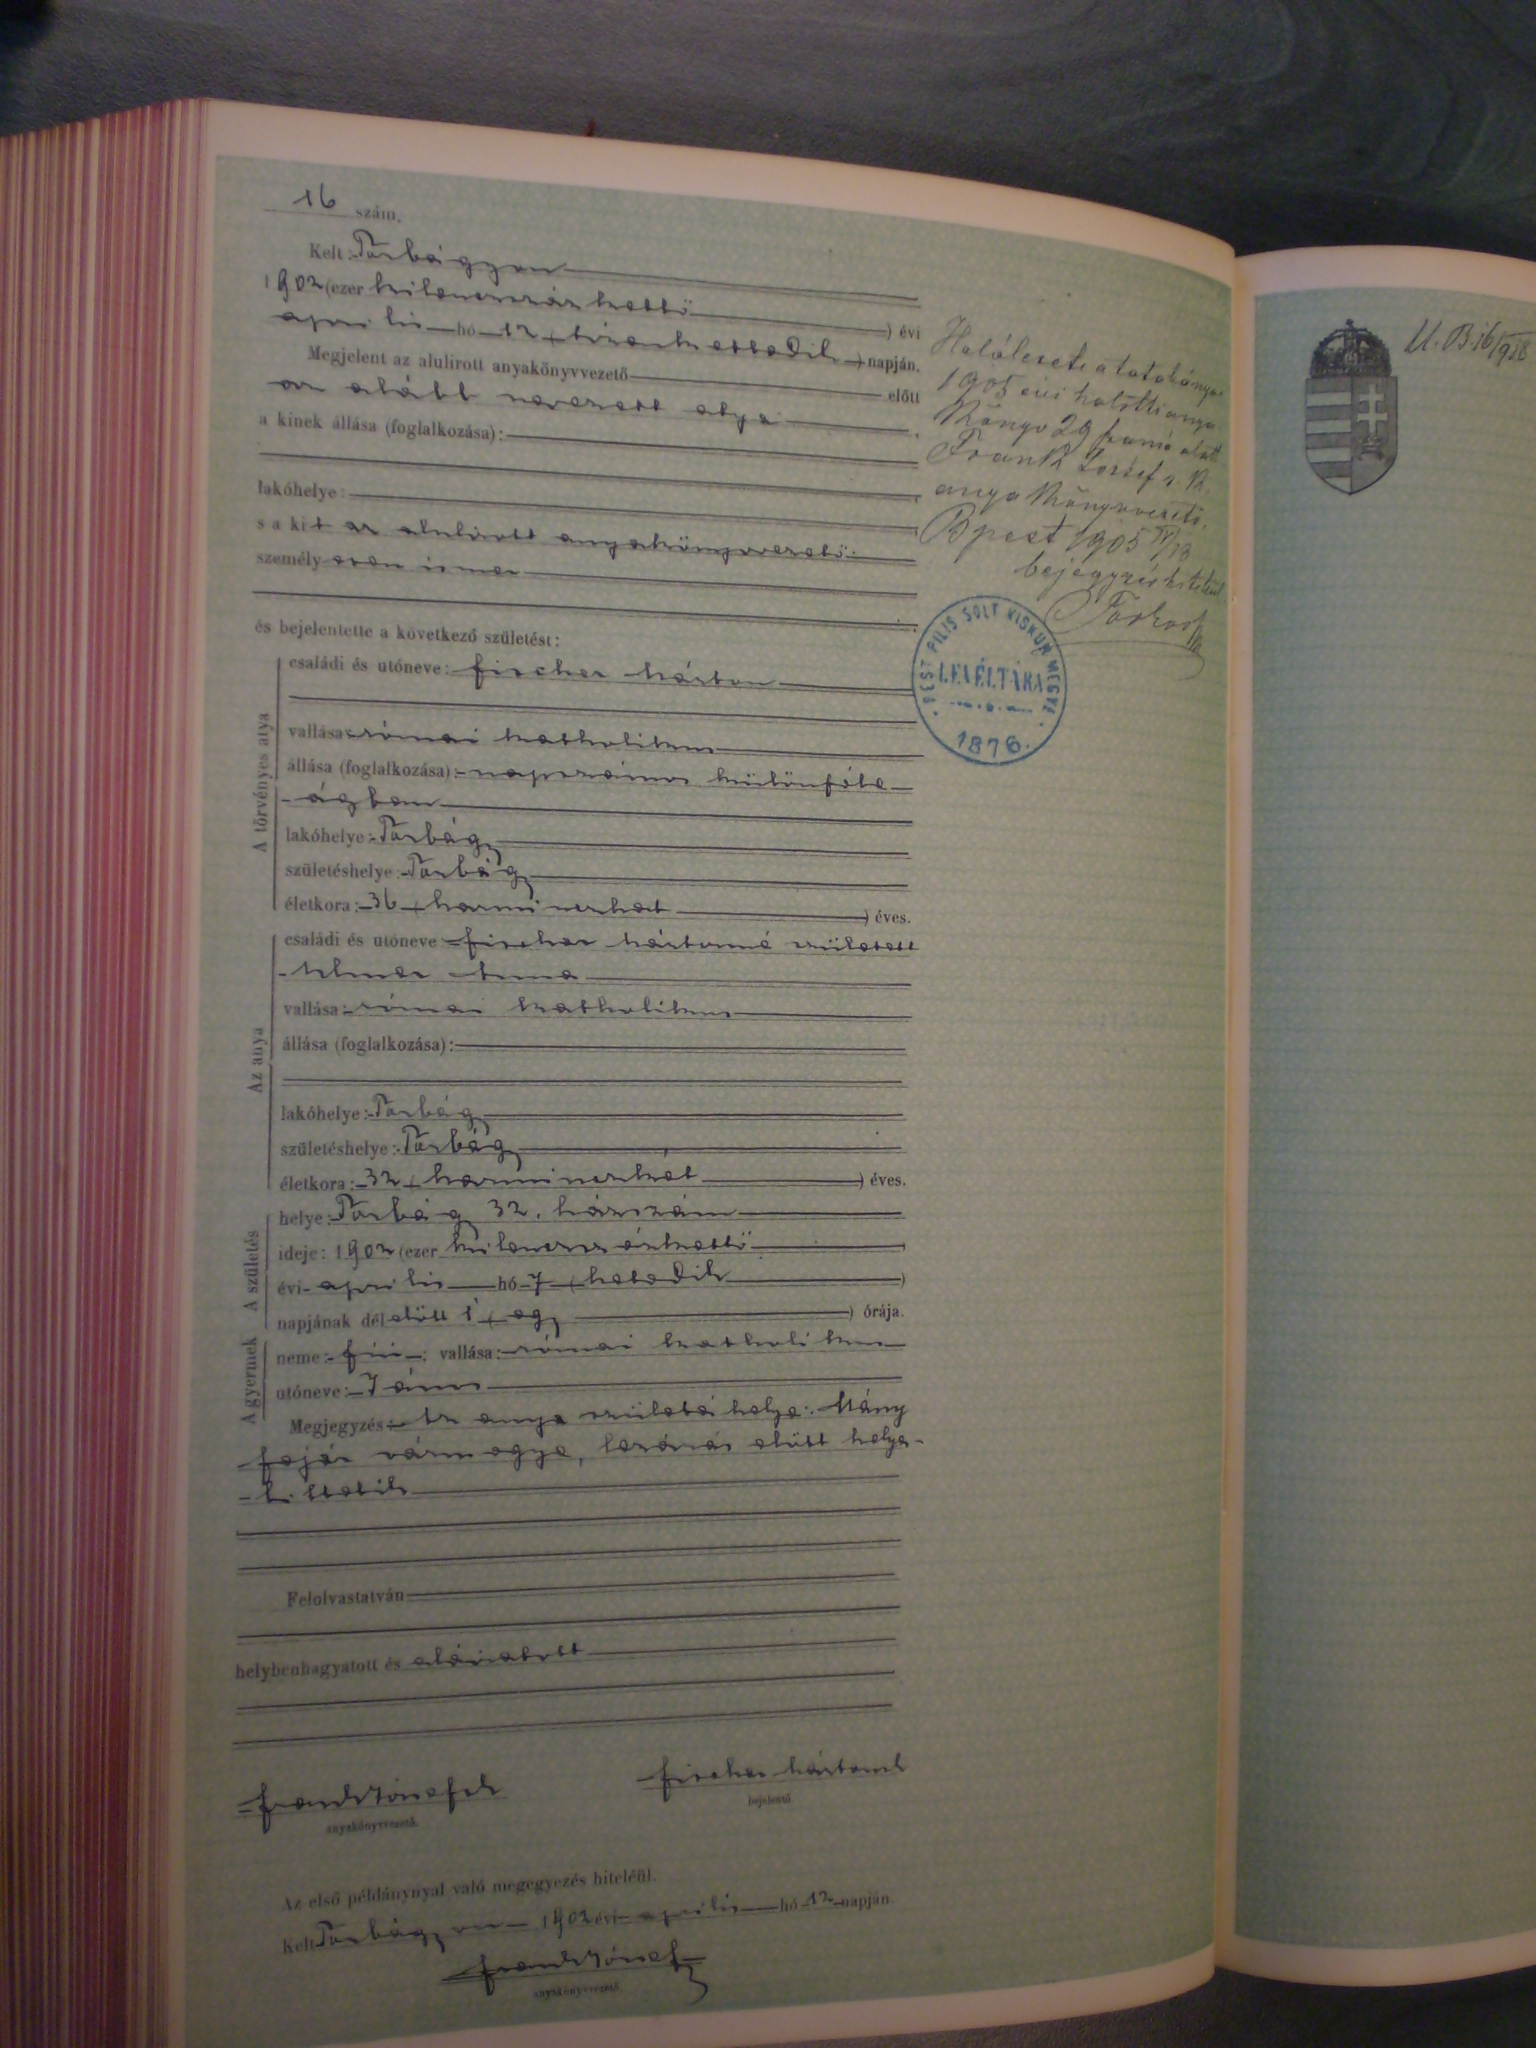 16 szám.
Kelt: Torbágyon
1902 (ezer kilenczszáz kettő) évi
április hó 12 (tizenkettedik) napján.
Megjelent az alulirott anyakönyvvezető előtt
az alább nevezett atya
a kinek állása (foglalkozása):
lakóhelye:
s a kit az alulírott anyakönyvvezető
személyesen ismer
és bejelentette a következő születést:
A törvényes atya
családi és utóneve: Fischer Márton
vallása: római katholikus
állása (foglalkozása): napszámos különféle
ágban
lakóhelye: Torbágy
születéshelye: Torbágy
életkora: 36 (harminczhat) éves.
Az anya
családi és utóneve: Fischer Mártonné született
Anna
vallása: római katholikus
állása (foglalkozása):
lakóhelye: Torbágy
születéshelye: Torbágy
életkora: 32 (harminczkét) éves.
A születés
helye: Torbágy 32. házszám
ideje: 1902 (ezer kilenczszázkettő
évi április hó 7 (hetedik)
napjának délelőtt 1 (egy) órája.
A gyermek
neme: fiú; vallása: római katholikus
utóneve: János
Megjegyzés: Az anya születési helye: Mány
fejér vármegye, lezárás előtt helye-
Felolvastatván
helybenhagyatott és aláíratott
Frank Józsefsk
anyakönyvvezető.
Fischer Mártonsk
bejelentő
Az első példánynyal való megegyezés hiteléül.
Kelt Torbágyon 1902 évi április hó 12 napján.
Frank József
anyakönyvvezető.
Halálesete a totobánya
1905 évi halotti anya
könyv 29 szám alatt
Frank József s. k.
anyakönyvvezető.
Bpest 1905 IV/13
bejegyzés hiteléül
PEST PILIS SOLT KISKUN MEGYE
LEVÉLTÁRA
1876.
U. B. 16/918